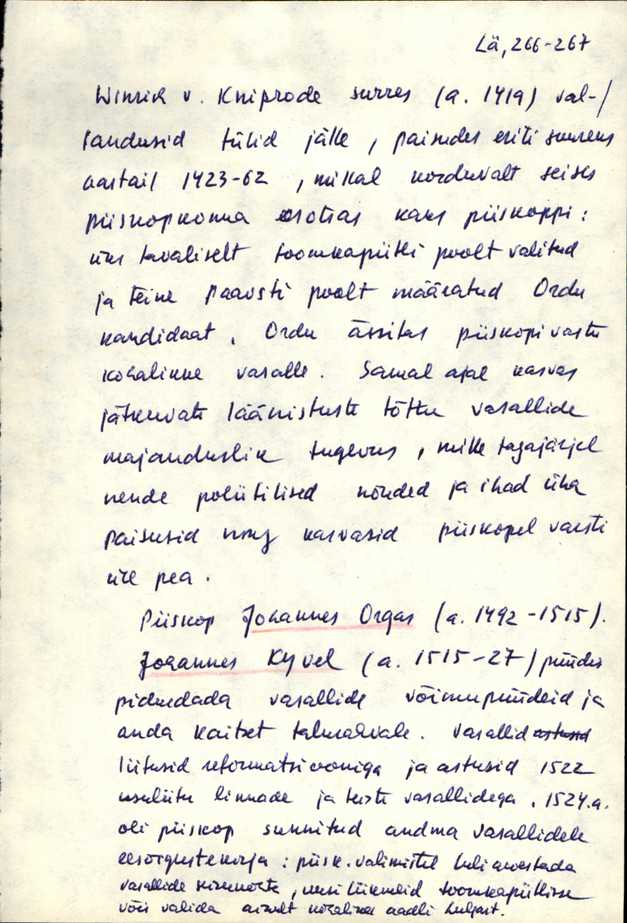 Lä, 266-267
Winrich v. Kniprode surres (a. 1419) val-/
landusid tülid jälle, paisudes eriti suureks
aastail 1423-62, mikal korduvalt seises
piiskopkonna eesotsas kaks piiskoppi:
üks tavaliselt toomkapiitli poolt valitud
ja teine paavsti poolt määratud Ordu
kandidaat. Ordu ässitas piiskopi vastu
kohalikke vasalle. Samal ajal kasvas
jätkuvate läänistuste tõttu vasallide
majanduslik tugevus, mille tagajärjel
nende poliitilised nõuded ja ihad üha
paisusid ning kasvasid piiskopel varsti
üle pea.
Piiskop Johannes Orgas (a. 1492-1515).
Johannes Kyvel (a. 1515-27) püüdis
pidurdada vasallide võimupüüdeid ja
anda kaitset talurahvale. Vasallid astusid
liitusid reformatsiooniga ja astusid 1522
usuliitu linnade ja teiste vasallidega. 1524.a.
oli piiskop sunnitud andma vasallidele
eesõigustekirja: piisk. valimistel tuli arvestada
vasallide soovidega, uusi liikmeid toomkapiitlisse
võis valida ainult kohaliku aadli hulgast.